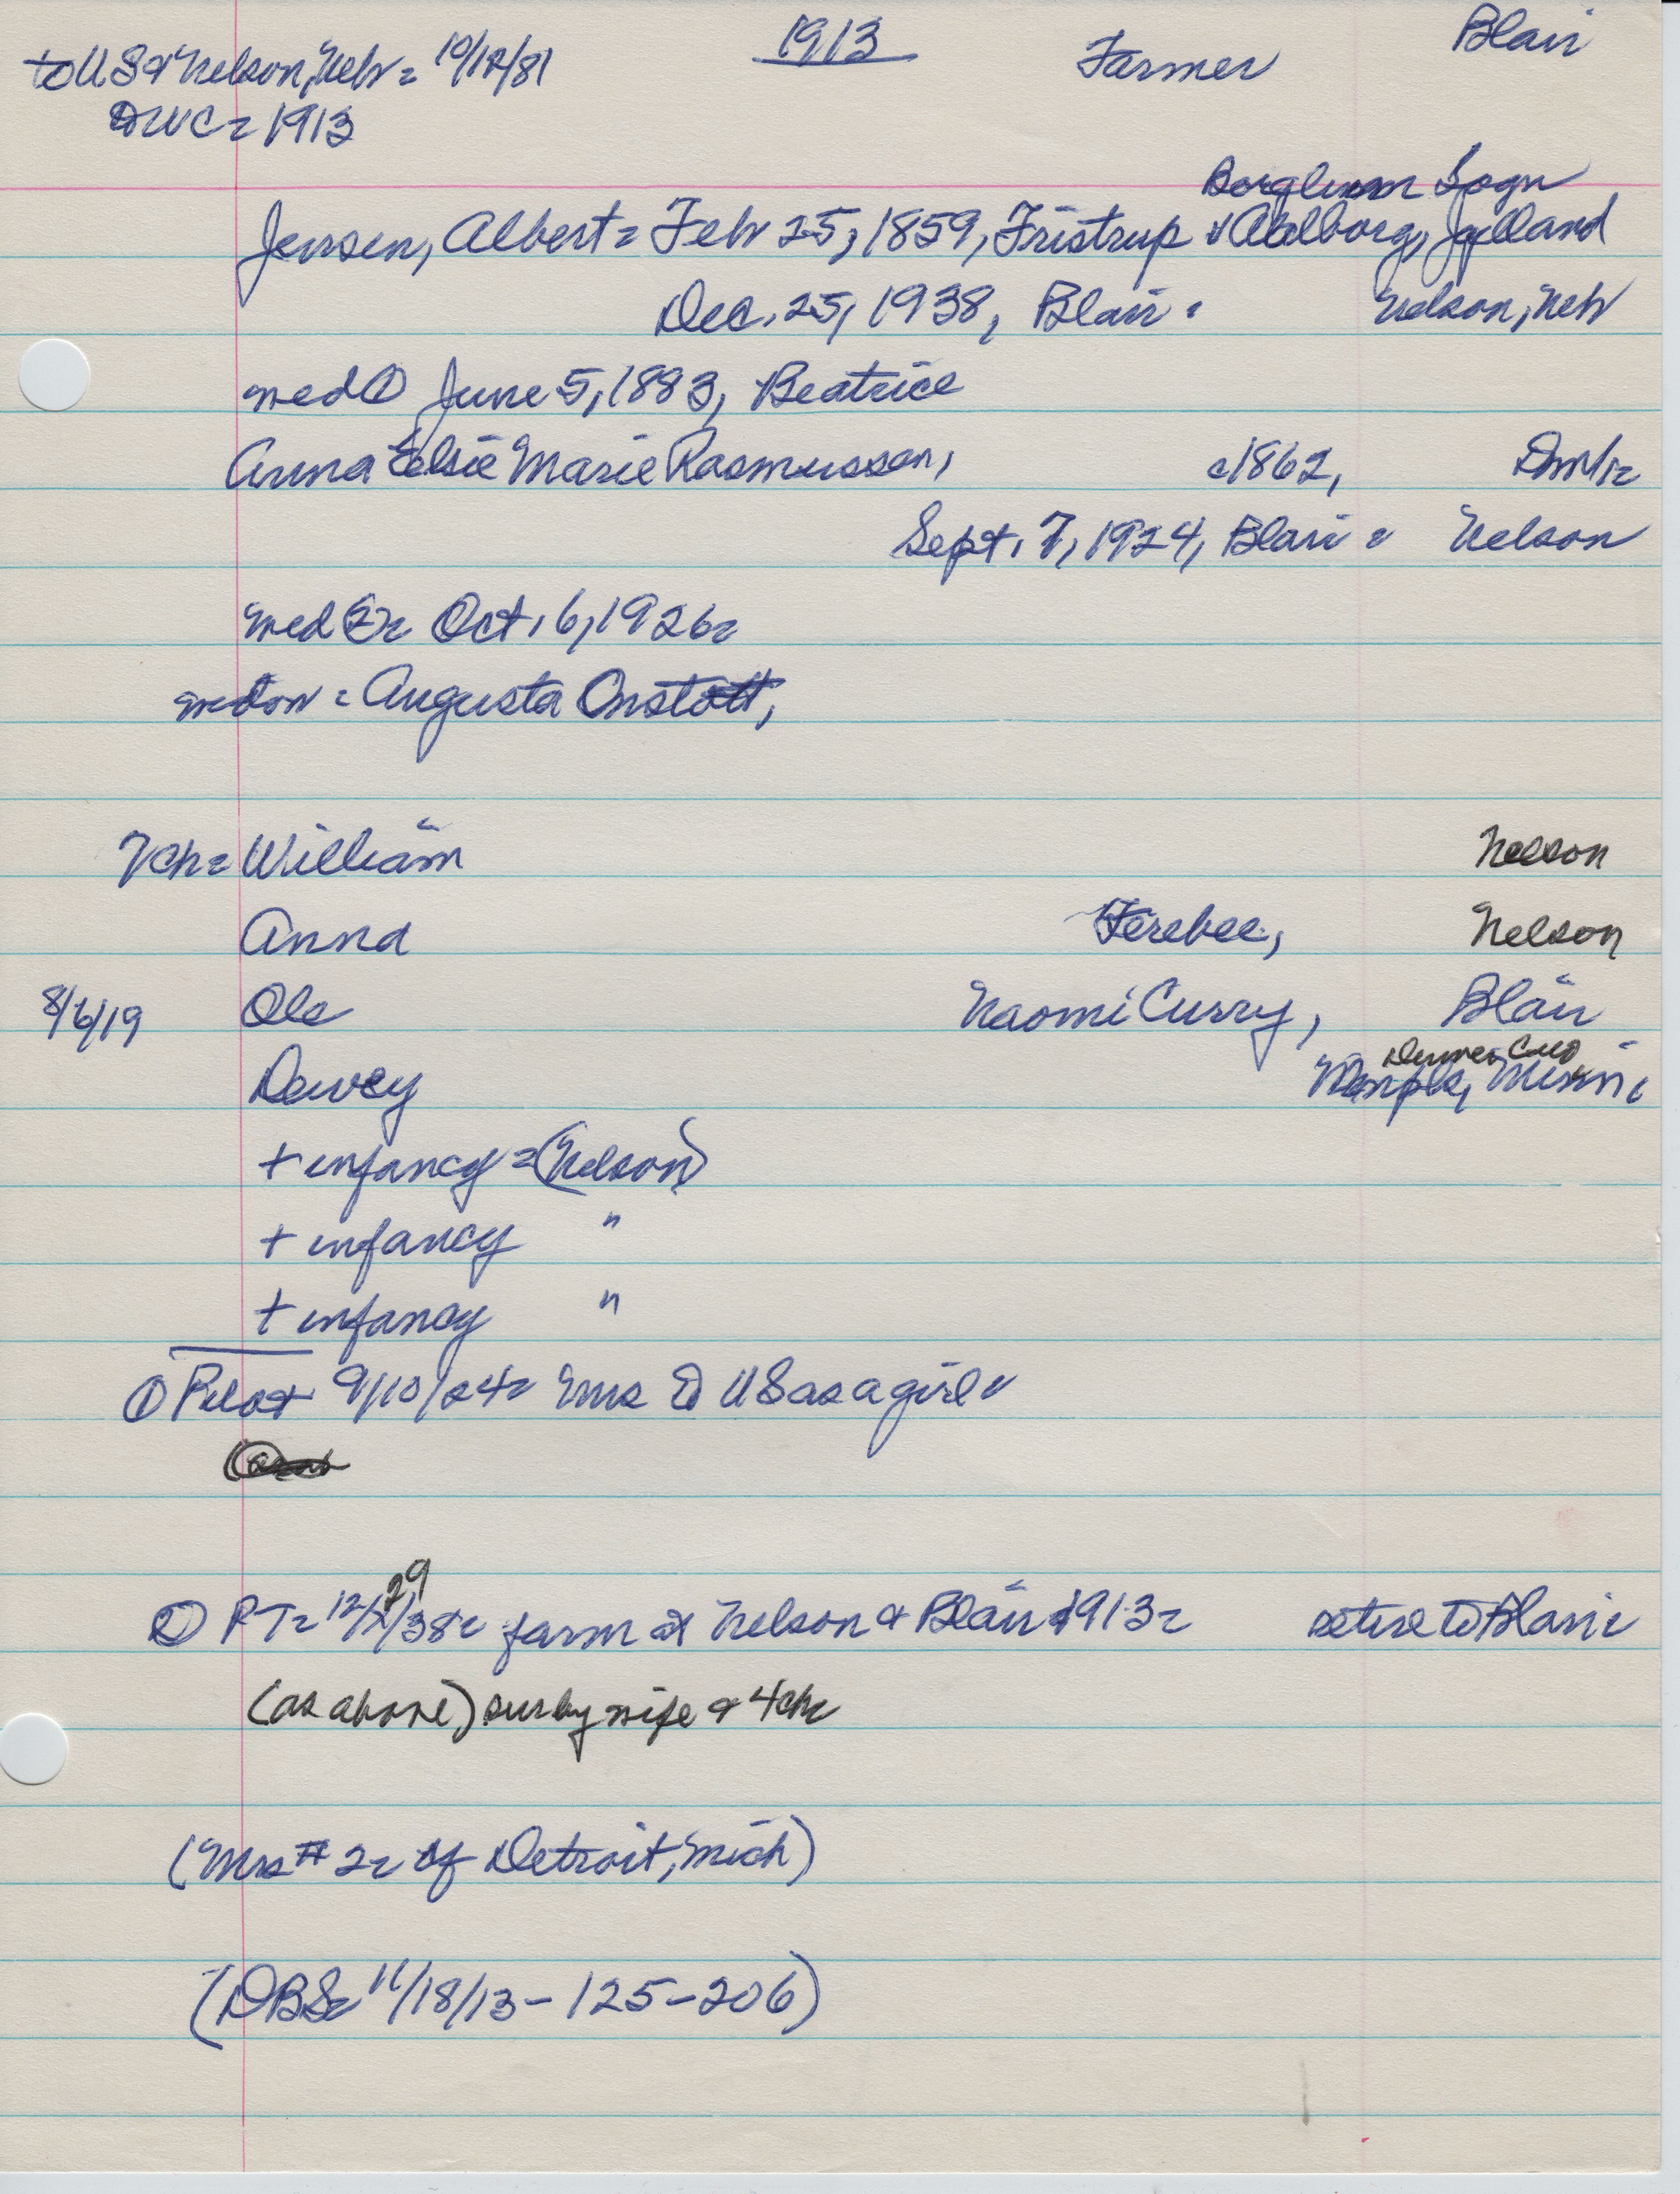 1913 Farmer Blair
to US & Nelson, Nebr = 10/12/81
DWC = 1913
Sogn
Jensen, Albert = Febr 25, 1859, Fristrup v Aalborg, Jylland
Dec. 25, 1938, Blair = Nelson, Nebr
med ① June 5, 1883, Beatrice
Anna Elsie Marie Rasmussen, c1862, Dmk=
Sept. 7, 1924, Blair = Nelson
med ② = Oct. 6, 1926=
= Augusta Onstott,
7ch= William Nelson
Anna Ferebee, Nelson
8/6/19 Ole Naomi Curry, Blair
Denver, Colo
Dewey
+ infancy = (Nelson)
+ infancy "
+ infancy "
① 9/10/24= Mrs to US as a girl =
② PT= 12/29/38= farm at Nelson & Blair 1913= retire to Blair=
(as above) sur by wife & 4ch=
(Mrs #2= of Detroit, Mich)
(DBS= 11/18/13-125-206)